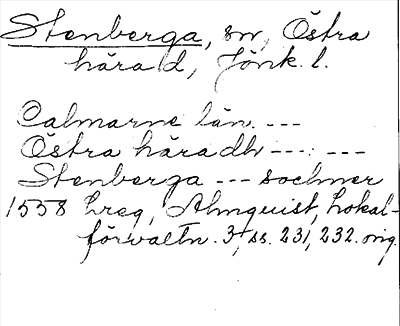 Stenberga, sn, Östra
härad, Jönk. l.
Calmarne län. ---
Östra häradh --- ; ---
Stenberga --- sochner
1558 Lreg, Almquist, Lokal-
förvaltn. 3, ss. 231, 232. orig.